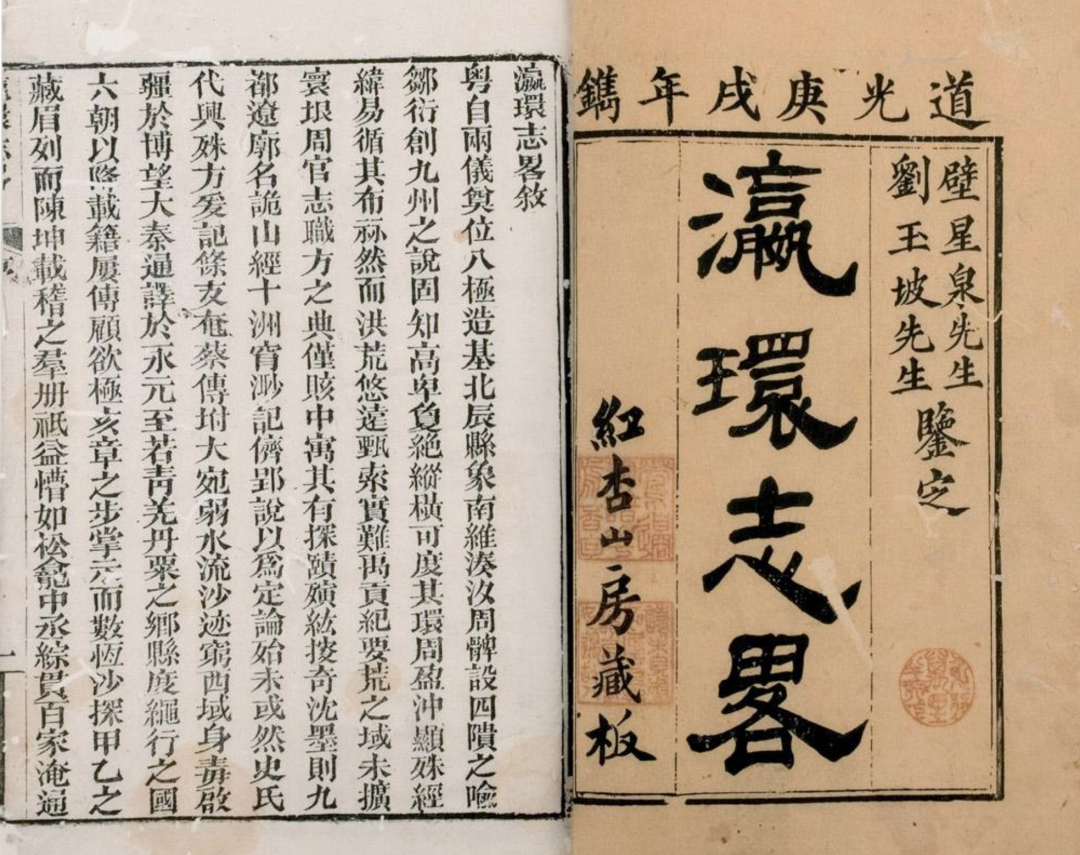 道光庚戌年鐫
壁星泉先生
劉玉坡先生
鑒定
瀛環志畧
紅杏山房藏板
瀛環志畧敘
粤自兩儀奠位八極造基北辰縣象南維湊汝周髀設四隤之喻
鄒衍創九州之說固知高卑負絶縱橫可度其環周盈沖顯殊經
緯易循其布㳽然而洪荒悠遠甄索實難禹貢紀要荒之域未擴
寰垠周官志職方之典僅賅中寓其有探賾獷紘捘奇沈墨則九
都遼廓名詭山經十洲宵渺記儕郢說以爲定論始未或然史氏
代興殊方爰記條支奄蔡傳坿大宛弱水流沙迹窮西域身毒啟
疆於博望大秦通譯於永元至若靑羌丹粟之鄉縣度繩行之國
六朝以降載籍屢傳顧欲極亥章之步掌示而數恆沙探甲乙之
藏眉列而陳坤載稽之羣册祇益懵如松龕中丞綜貫百家淹通